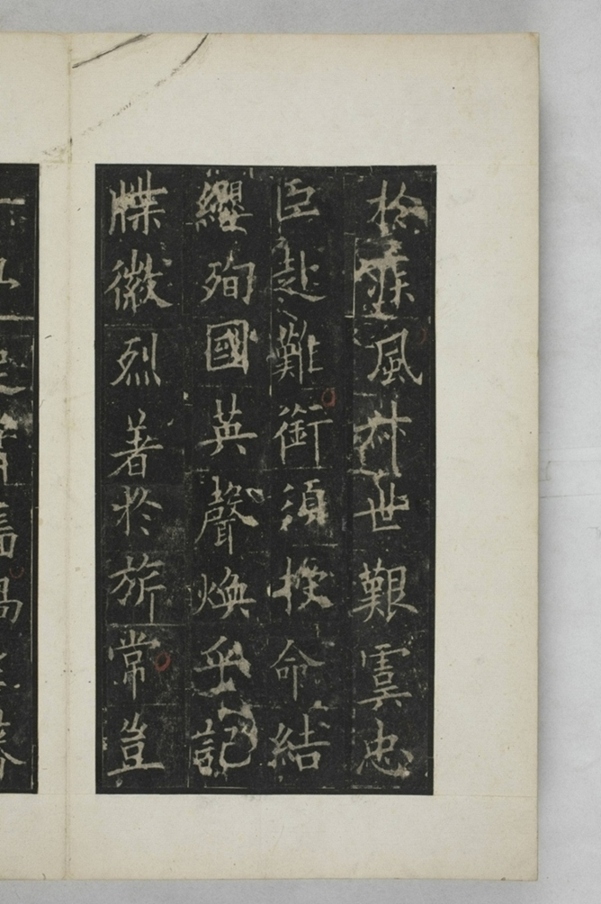 於疾風叔世艱虞忠
臣赴難銜須授命結
纓殉國英聲煥乎記
牒徽烈著於旂常豈